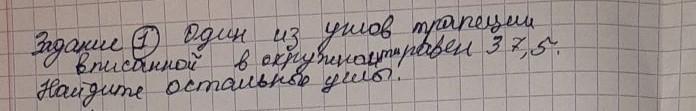 Задание 1 Один из углов трапеции
вписанной в окружности равен 37,5.
Найдите остальные углы.